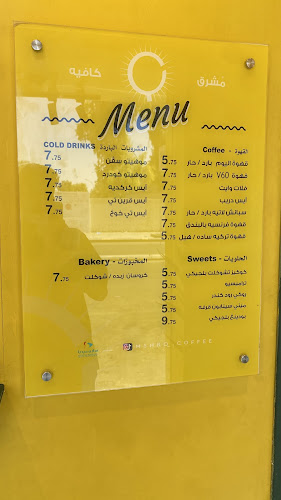 مشرق كافيه
Menu
القهوة - Coffee
قهوة اليوم بارد / حار 5.75
قهوة V60 بارد / حار 7.75
فلات وايت 7.75
ايس دريب 7.75
سبانش لاتيه بارد / حار 7.75
قهوة فرنسية بالبندق 7.75
قهوة تركية ساده / هيل 5.75
المشروبات الباردة COLD DRINKS
موهيتو سفن 7.75
موهيتو كودرد 7.75
ايس كركديه 7.75
ايس قرين تي 7.75
ايس تي خوخ 7.75
الحلويات - Sweets
كوكيز تشوكلت بلجيكي 5.75
تراميسو 5.75
روكي رود كندر 5.75
ميني سينابون قرفه 5.75
9.75
المخبوزات - Bakery
كروسان زبده / شوكلت 7.75
COFFEE